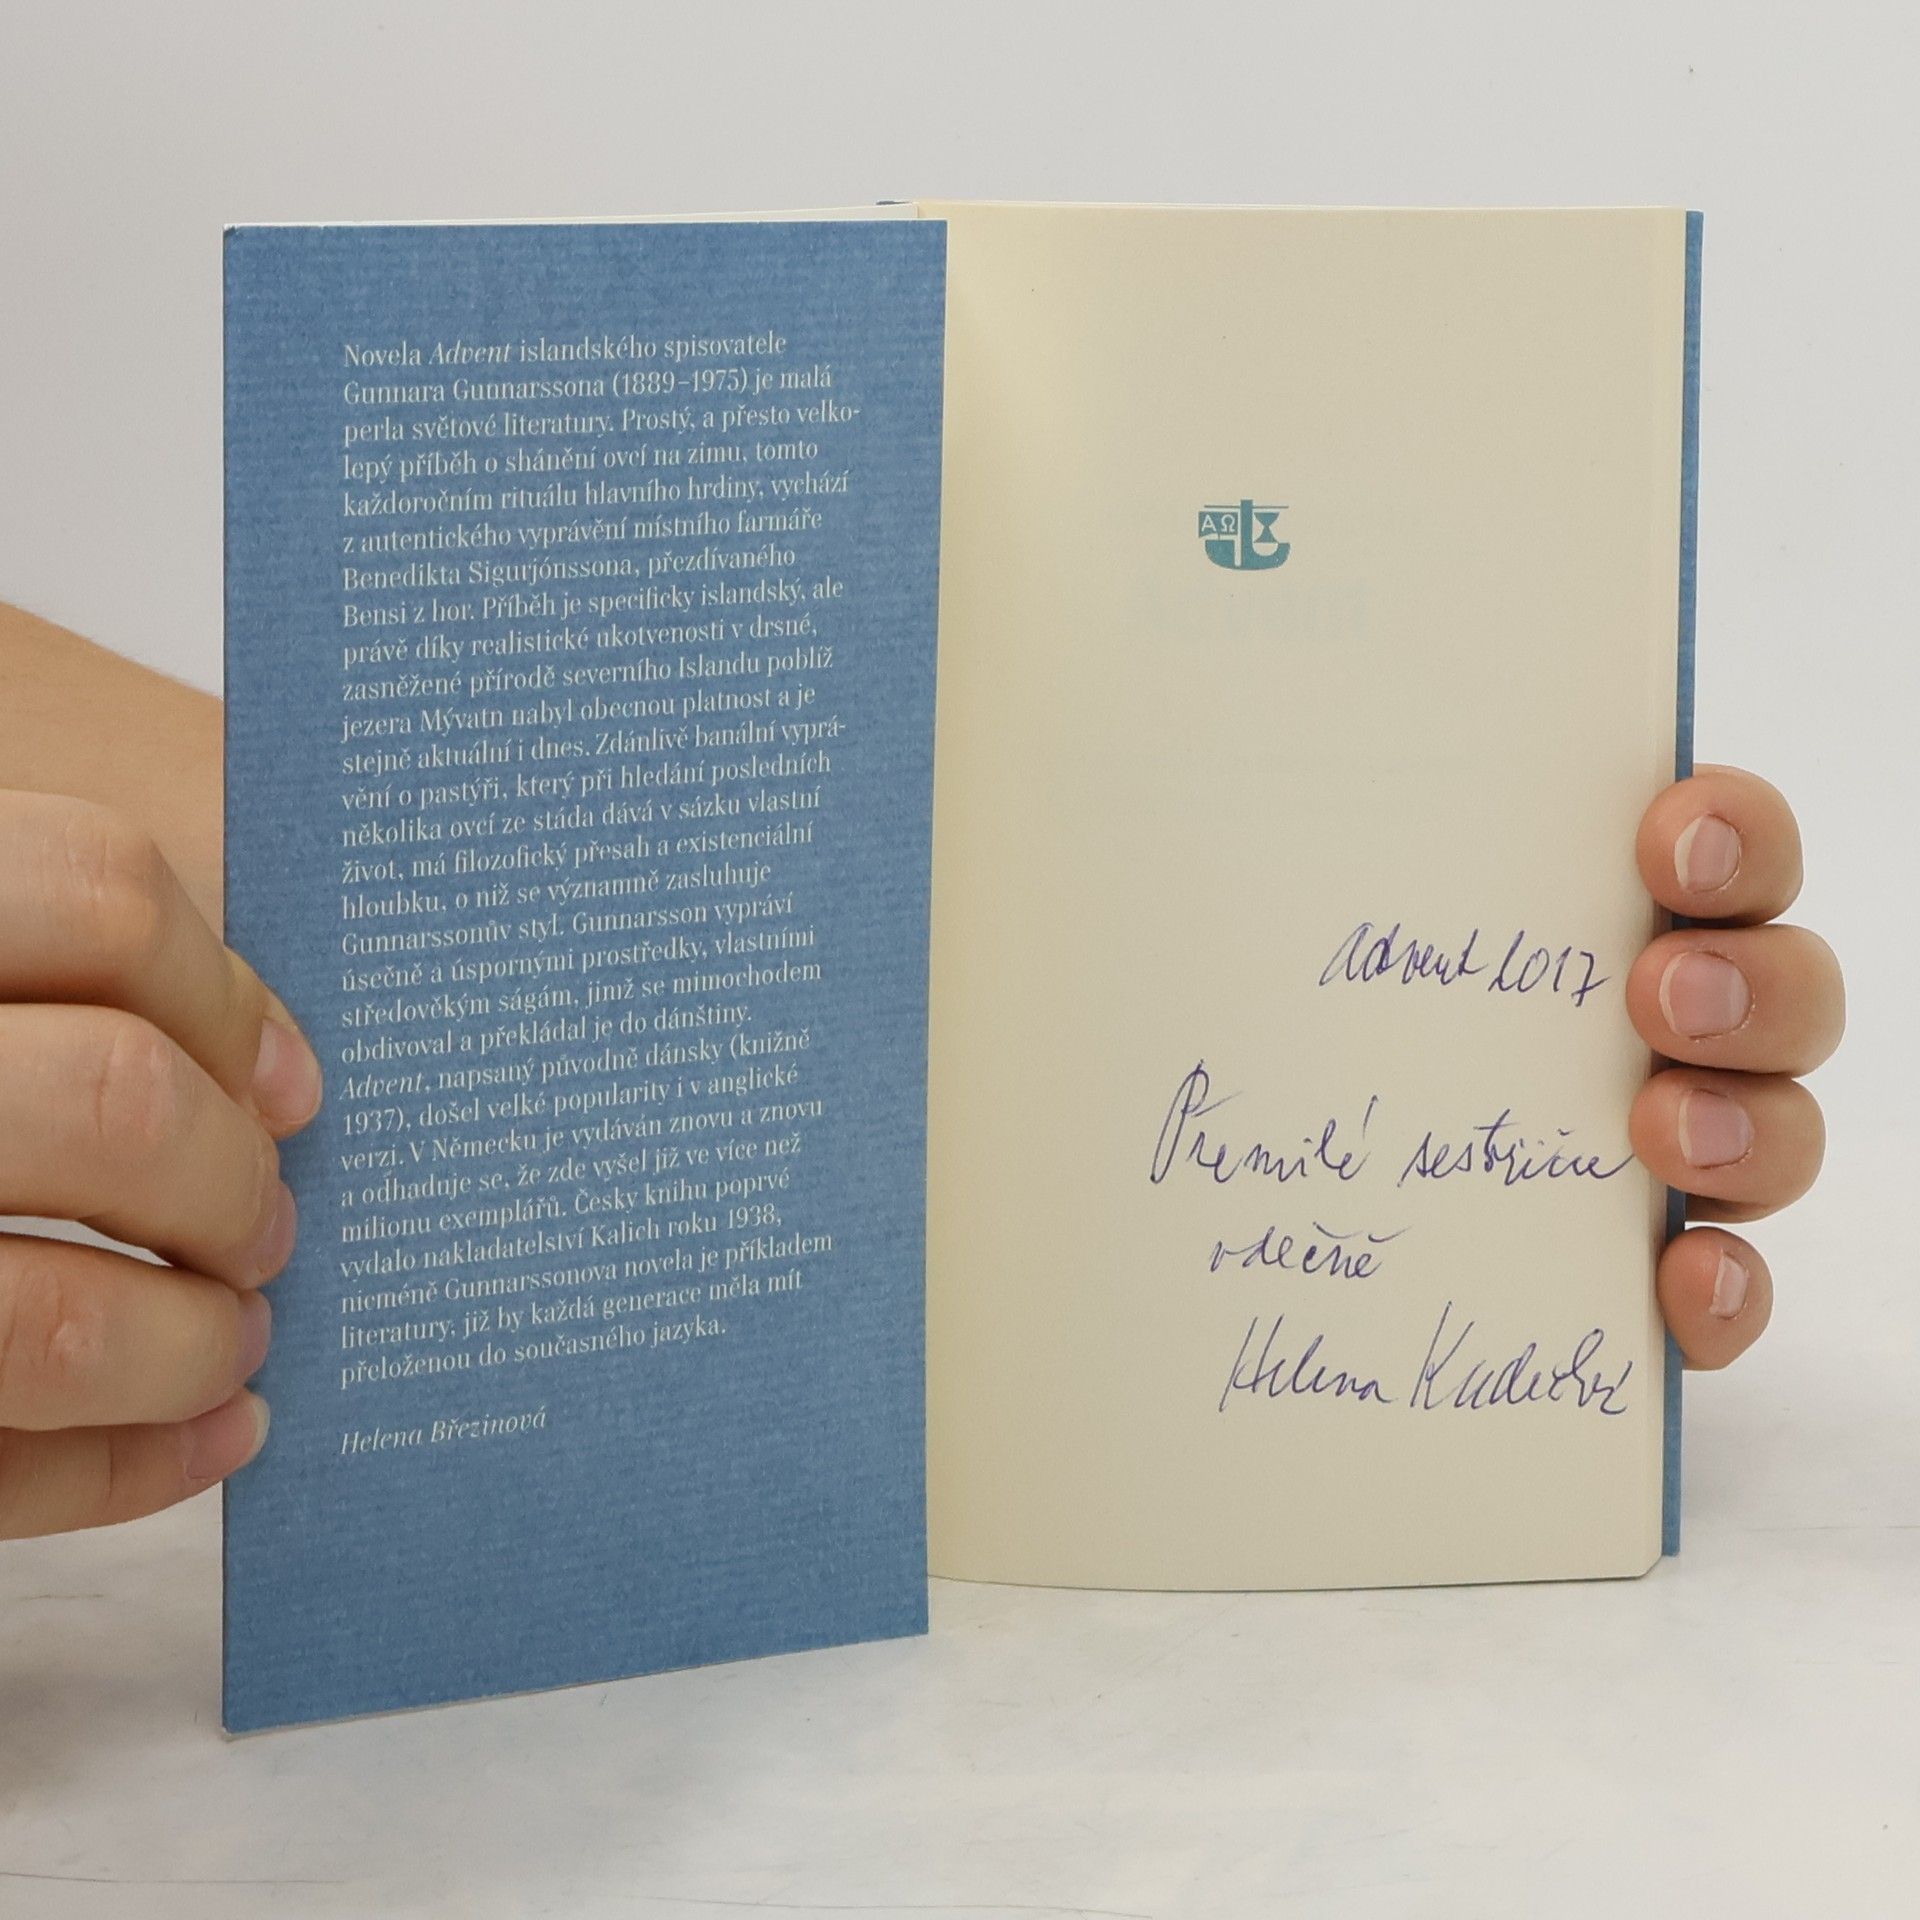 Novela Advent islandského spisovatele
Gunnara Gunnarssona (1889–1975) je malá
perla světové literatury. Prostý, a přesto velko-
lepý příběh o shánění ovcí na zimu, tomto
každoročním rituálu hlavního hrdiny, vychází
z autentického vyprávění místního farmáře
Benedikta Sigurjónssona, přezdívaného
Bensi z hor. Příběh je specificky islandský, ale
právě díky realistické ukotvenosti v drsné,
zasněžené přírodě severního Islandu poblíž
jezera Mývatn nabyl obecnou platnost a je
stejně aktuální i dnes. Zdánlivě banální vyprá-
vění o pastýři, který při hledání posledních
několika ovcí ze stáda dává v sázku vlastní
život, má filozofický přesah a existenciální
hloubku, o niž se významně zasluhuje
Gunnarssonův styl. Gunnarsson vypráví
úsečně a úspornými prostředky, vlastními
středověkým ságám, jimž se mimochodem
obdivoval a překládal je do dánštiny.
Advent, napsaný původně dánsky (knižně
1937), došel velké popularity i v anglické
verzi. V Německu je vydáván znovu a znovu
a odhaduje se, že zde vyšel již ve více než
milionu exemplářů. Česky knihu poprvé
vydalo nakladatelství Kalich roku 1938,
nicméně Gunnarssonova novela je příkladem
literatury, již by každá generace měla mít
přeloženou do současného jazyka.
Helena Březinová
ΑΩ
Advent 2017
Přemilé sestřičce
vděčně
Helena